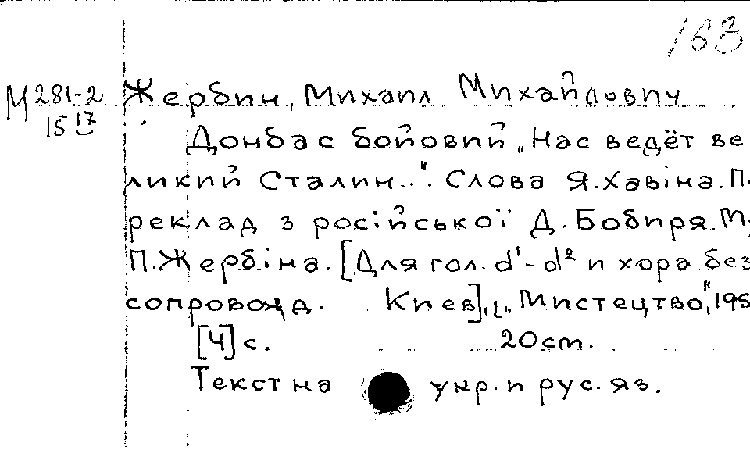 163
М 281-2 Жербин, Михаил Михайлович
15 17
Донбас бойовий „Нас ведёт ве
ликий Сталин..". Слова Я.Хавіна. П.
реклад з російської Д.Бобиря. М.
П.Жербіна. [Для гол. d¹-d² и хора без
сопровожд. Киев], „Мистецтво", 195
[4] с. 20cm.
Текст на укр. и рус. яз.